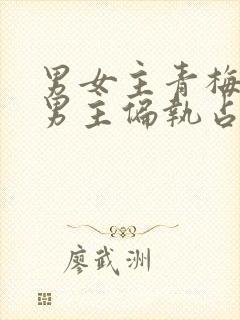 男女主青梅
男主偏执占
廖武洲